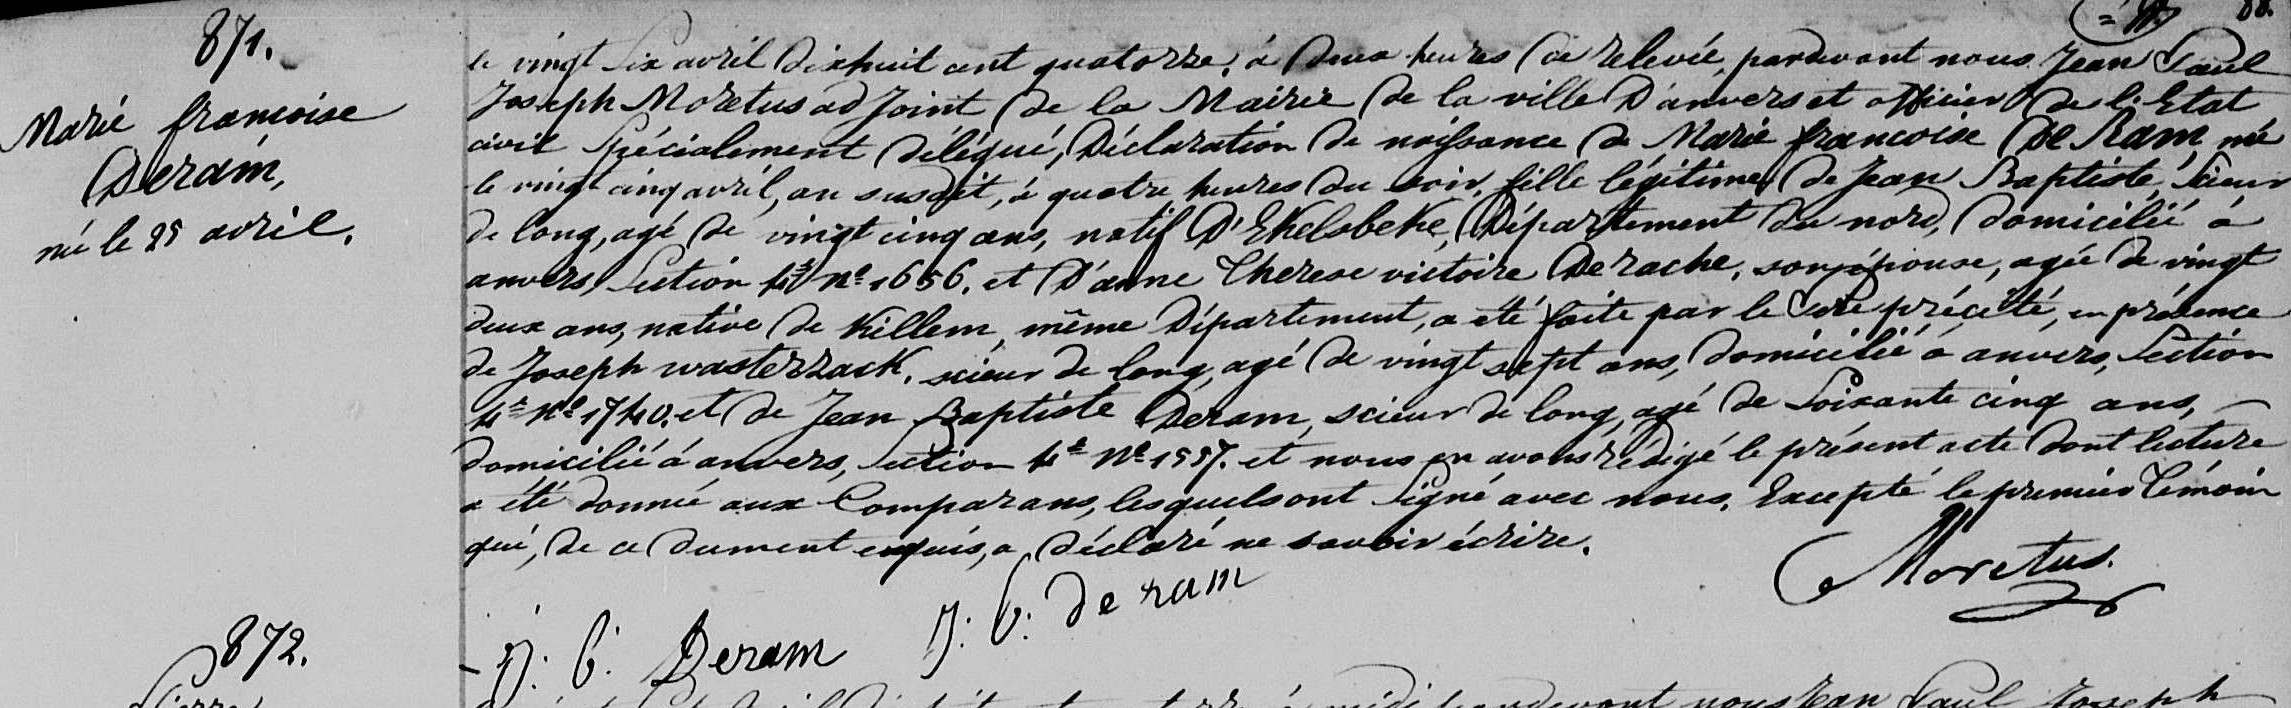 88.
871.
Marie françoise
Deram,
né le 25 avril.
le vingt six avril dixhuit cent quatorze, à deux heures de relevée, pardevant nous Jean Paul
Joseph Moretus adjoint de la Mairie de la ville D'anvers et officier de l'Etat
civil Spécialement délégué, Déclaration de naissance de Marie françoise De Ram, née
le vingt cinq avril, an susdit, à quatre heures du soir, fille légitime de Jean Baptiste, Scieur
de long, agé de vingt cinq ans, natif D'Ekelsbeke, Département du nord, domicilié à
anvers, Section 4e no 1656. et D'anne Therese victoire Derache, son épouse, agée de vingt
deux ans, native de Killem, même Département, a été faite par le Père précité, en présence
de Joseph wasterzack, scieur de long, agé de vingt sept ans, domicilié à anvers, Section
4e No 1740. et de Jean Baptiste Deram, scieur de long, agé de Soixante cinq ans,
domicilié à anvers, Section 4e No 1557. et nous en avons rédigé le présent acte dont lecture
a été donnée aux Comparans, lesquels ont Signé avec nous, Excepté le premier Témoin
qui, de ce dument enquis, a déclaré ne savoir écrire.
Moretus.
J: b: Deram J: b: de ram
872.
Pierre
nous Jean Paul Joseph